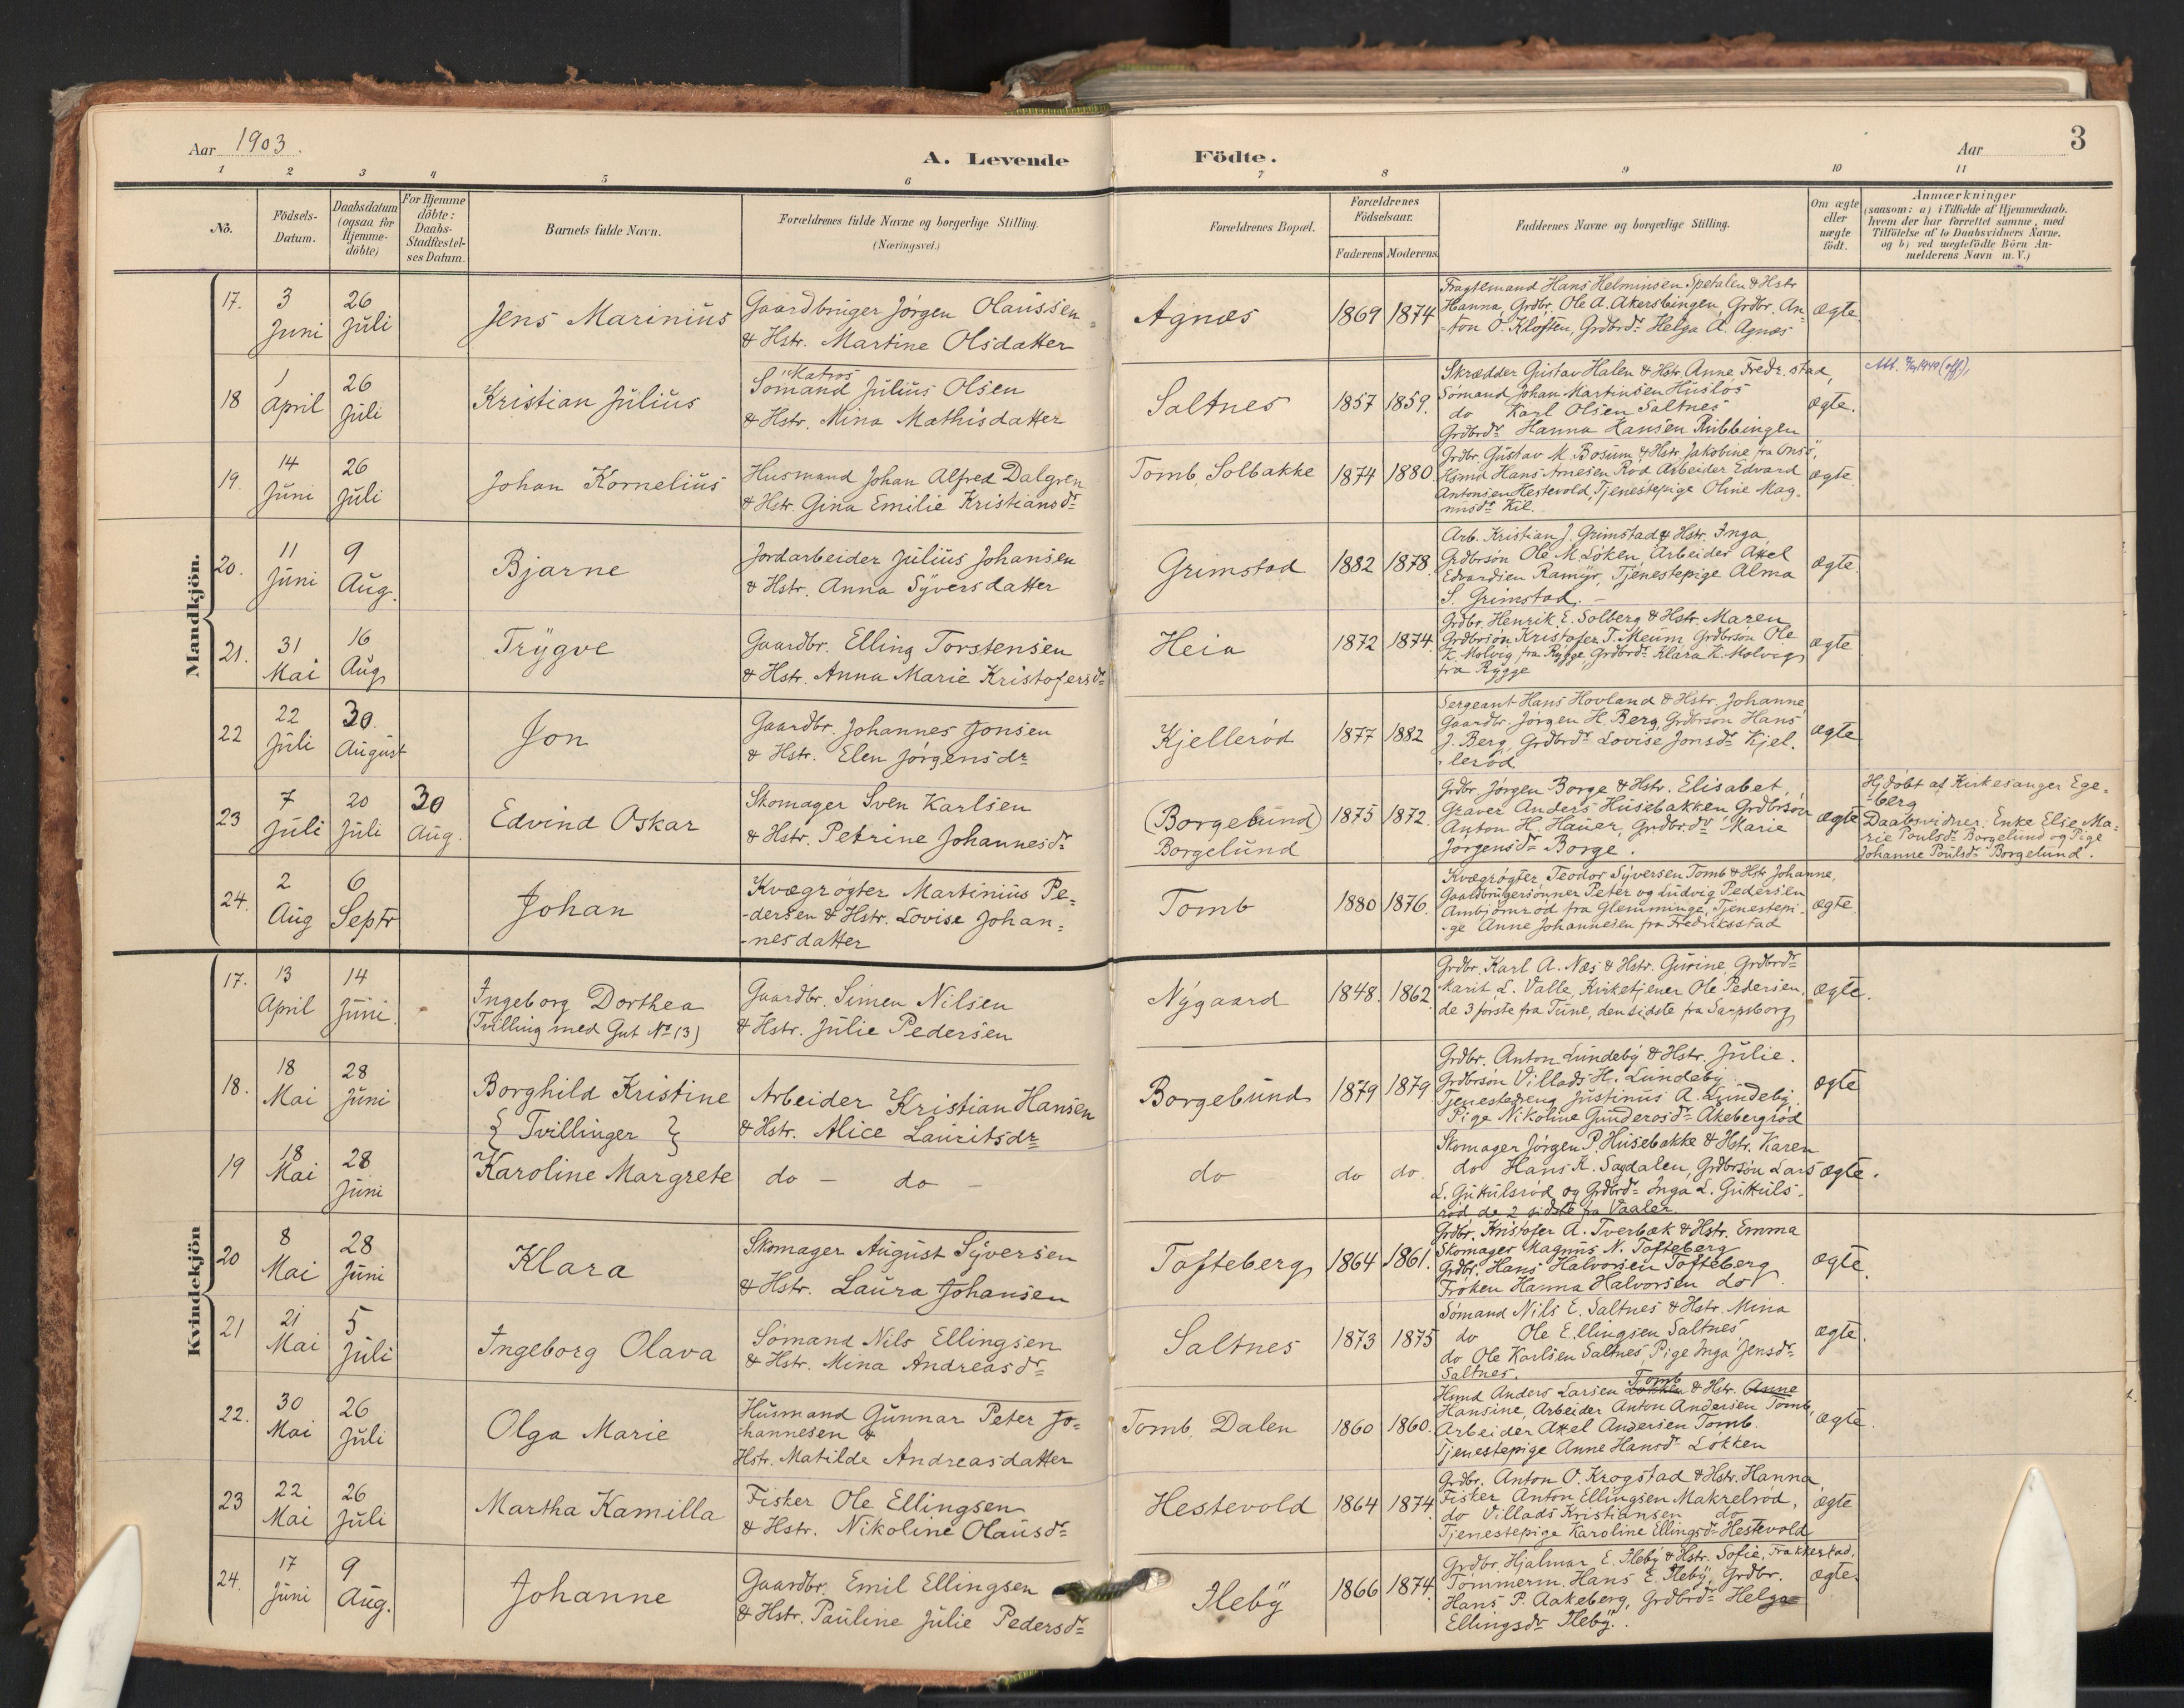 Aar 1903.
A. Levende Födte.
Aar
3
1 2 3 4 5 6 7 8 9 10 11
No.
Födsels-Datum.
Daabsdatum (ogsaa for Hjemme-döbte)
For Hjemme döbte: Daabs-Stadfæstel-ses Datum.
Barnets fulde Navn.
Forældrenes fulde Navne og borgerlige Stilling.
(Næringsvei.)
Forældrenes Bopæl.
Forældrenes Födselsaar.
Faderens Moderens
Faddernes Navne og borgerlige Stilling.
Om ægte eller uægte födt.
Anmærkninger
(saasom: a) i Tilfælde af Hjemmedaab.
hvem der har forrettet samme, med
Tilföielse af to Daabsvidners Navne.
og b) ved uægtefödte Börn An-
melderens Navn m. V.)
Mandkjön.
17. 3 Juni 26 Juli Jens Marinius
Gaardbruger Jørgen Olaussen
& Hstr. Martine Olsdatter
Agnæs 1869 1874
Fragtemand Hans Helminsen Spetalen & Hstr
Hanna, Grdbr. Ole A. Akersbingen, Grdbr. An-
-ton O. Kloften, Grdbrdr. Helga A. Agnæs
ægte.
18 1 April 26 Juli Kristian Julius
"Matros
Sømand Julius Olsen
& Hstr. Mina Mathisdatter
Saltnes 1857 1859.
Skrædder Gustav Halen & Hstr. Anne Fredr.stad,
Sømand Johan Martinsen Husløs
do Karl Olsen Saltnes
Grdbrdr. Hanna Hansen Rubbingen
ægte.
19. 14 Juni 26 Juli Johan Kornelius
Husmand Johan Alfred Dalgren
& Hstr. Gina Emilie Kristiansdr.
Tomb, Solbakke 1874 1880
Grdbr. Gustav M. Bosum & Hstr. Jakobine fra Onsø,
Hsmd Hans Arnesen Rød Arbeider Edvard
Antonsen Hestevold, Tjenestepige Oline Mag-
nusdr. Kil.
ægte
20. 11 Juni 9 Aug. Bjarne
Jordarbeider Julius Johansen
& Hstr. Anna Syversdatter
Grimstad 1882 1878.
Arb. Kristian J. Grimstad & Hstr. Inga,
Grdbrsøn Ole M. Løken, Arbeider Axel
Edvardsen Ramyr, Tjenestepige Alma
S. Grimstad. –
ægte
21. 31 Mai 16 Aug Trygve
Gaardbr. Elling Torstensen
& Hstr. Anna Marie Kristofersdr.
Heia 1872 1874.
Grdbr. Henrik E. Solberg & Hstr. Maren
Grdbrsøn Kristofer T. Meum, Grdbrsøn Ole
K. Molvig fra Rygge, Grdbrdr. Klara K. Molvig
fra Rygge
ægte
22 22 Juli 30. August Jon
Gaardbr. Johannes Jonsen
& Hstr. Elen Jørgensdr.
Kjellerød 1877 1882
Sergeant Hans Hovland & Hstr. Johanne,
Gaardbr. Jørgen H. Berg, Grdbrsøn Hans
J. Berg, Grdbrdr. Lovise Jonsdr. Kjel-
-lerød
ægte
23 7 Juli 20 Juli 30 Aug. Edvind Oskar
Skomager Sven Karlsen
& Hstr. Petrine Johannesdr.
(Borgebund)
Borgelund 1875 1872.
Grdbr. Jørgen Borge & Hstr. Elisabet,
Graver Anders Husebakken, Grdbrsøn
Anton H. Hauer, Grdbr.dr Marie
Jørgensdr. Borge.
ægte
Hjdøbt af Kirkesanger Ege-
-berg
Daabsvidner: Enke Elise Ma-
rie Poulsdr. Borgelund og Pige
Johanne Poulsdr. Borgelund.
24. 2 Aug 6 Septr Johan
Kvægrøgter Martinius Pe-
-dersen & Hstr. Lovise Johan-
-nesdatter
Tomb 1880 1876.
Kvægrøgter Teodor Syversen Tomb & Hstr. Johanne,
Gaardbrugersønner Peter og Ludvig Pedersen
Ambjørnrød fra Glemminge, Tjenestepi-
-ge Anne Johannesen fra Fredriksstad
ægte.
Kvindekjön
17. 13 April 14 Juni. Ingeborg Dorthea
(Tvilling med Gut No 13)
Gaardbr. Simen Nilsen
& Hstr. Julie Pedersen
Nygaard 1848. 1862
Grdbr. Karl A. Næs & Hstr. Gurine, Grdbrdr.
Marit L. Valle, Kirketjener Ole Pedersen,
de 3 første fra Tune, den sidste fra Sarpsborg
ægte.
18. 18 Mai 28 Juni Borghild Kristine
{ Tvillinger }
Arbeider Kristian Hansen
& Hstr. Alice Lauritsdr.
Borgebund 1879 1879
Grdbr. Anton Lundeby & Hstr. Julie.
Grdbrsøn Villads H. Lundeby
Tjenestedreng Justinus A. Lundeby.
Pige Nikoline Gunderosdr. Akebergrød
ægte
19 18 Mai 28 Juni Karoline Margrete
do – do –
do do do.
Skomager Jørgen P. Husebakke & Hstr. Karen
do Hans K. Sagdalen, Grdbrsøn Lars
L. Gutulsrød og Grdbrdr. Inga L. Gutuls-
rød de 2 sidste fra Vaaler
ægte.
20 8 Mai 28 Juni Klara
Skomager August Syversen
& Hstr. Laura Johansen
Tofteberg 1864 1861.
Grdbr. Kristofer A. Tverbæk & Hstr. Emma
Skomager Magnus N. Tofteberg
Grdbr. Hans Halvorsen Tofteberg
Frøken Hanna Halvorsen do
ægte.
21 21 Mai 5 Juli Ingeborg Olava
Sømand Nils Ellingsen
& Hstr. Mina Andreasdr.
Saltnes 1873 1875
Sømand Nils E. Saltnes & Hstr. Mina
do Ole Ellingsen Saltnes
do Ole Karlsen Saltnes, Pige Inga Jensdr.
Saltnes.
ægte.
22. 30 Mai 26 Juli Olga Marie
Husmand Gunnar Peter Jo-
hannesen &
Hstr. Matilde Andreasdatter
Tomb, Dalen 1860 1860.
Tomb
Hsmd Anders Larsen Løkken & Hstr. Anne
Hansine, Arbeider Anton Andersen Tomb,
Arbeider Axel Andersen Tomb.
Tjenestepige Anne Hansdr. Løkken
ægte.
23 22 Mai 26 Juli Martha Kamilla
Fisker Ole Ellingsen
& Hstr. Nikoline Olausdr.
Hestevold 1864 1874.
Grdbr. Anton O. Krogstad & Hstr. Hanna
Fisker Anton Ellingsen Makrelrød,
do Villads Kristiansen do
Tjenestepige Karoline Ellingsdr. Hestevold
ægte
24. 17 Juni 9 Aug. Johanne
Gaardbr. Emil Ellingsen
& Hstr. Pauline Julie Pedersdr.
Ileby 1866 1874.
Grdbr. Hjalmar E. Ileby & Hstr. Sofie, Frakkestad,
Tømmerm. Hans E. Ileby, Grdbr.
Hans P. Aakeberg, Grdbrdr. Helga
Ellingsdr. Ileby.
ægte.